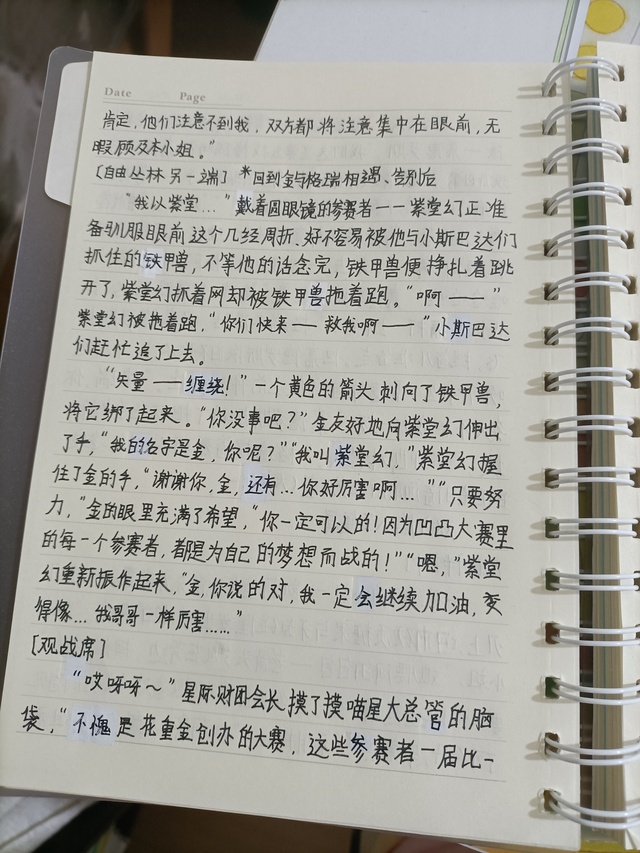 Date Page
肯定，他们注意不到我，双方都将注意集中在眼前，无
暇顾及本小姐。”
[自由丛林另一端] *回到金与格瑞相遇、告别后
“我以紫堂…”戴着圆眼镜的参赛者——紫堂幻正准
备驯服眼前这个几经周折、好不容易被他与小斯巴达们
抓住的铁甲兽，不等他的话念完，铁甲兽便挣扎着跳
开了，紫堂幻抓着网却被铁甲兽拖着跑。“啊——”
紫堂幻被拖着跑，“你们快来——救我啊——”小斯巴达
们赶忙追了上去。
“矢量——缠绕！”一个黄色的箭头刺向了铁甲兽，
将它绑了起来。“你没事吧？”金友好地向紫堂幻伸出
了手，“我的名字是金，你呢？”“我叫紫堂幻，”紫堂幻握
住了金的手，“谢谢你，金，还有…你好厉害啊…”“只要努
力，”金的眼里充满了希望，“你一定可以的！因为凹凸大赛里
的每一个参赛者，都是为自己的梦想而战的！”“嗯，”紫堂
幻重新振作起来，“金，你说的对，我一定会继续加油，变
得像…我哥哥一样厉害……”
[观战席]
“哎呀呀～”星际财团会长摸了摸喵星大总管的脑
袋，“不愧是花重金创办的大赛，这些参赛者一届比一